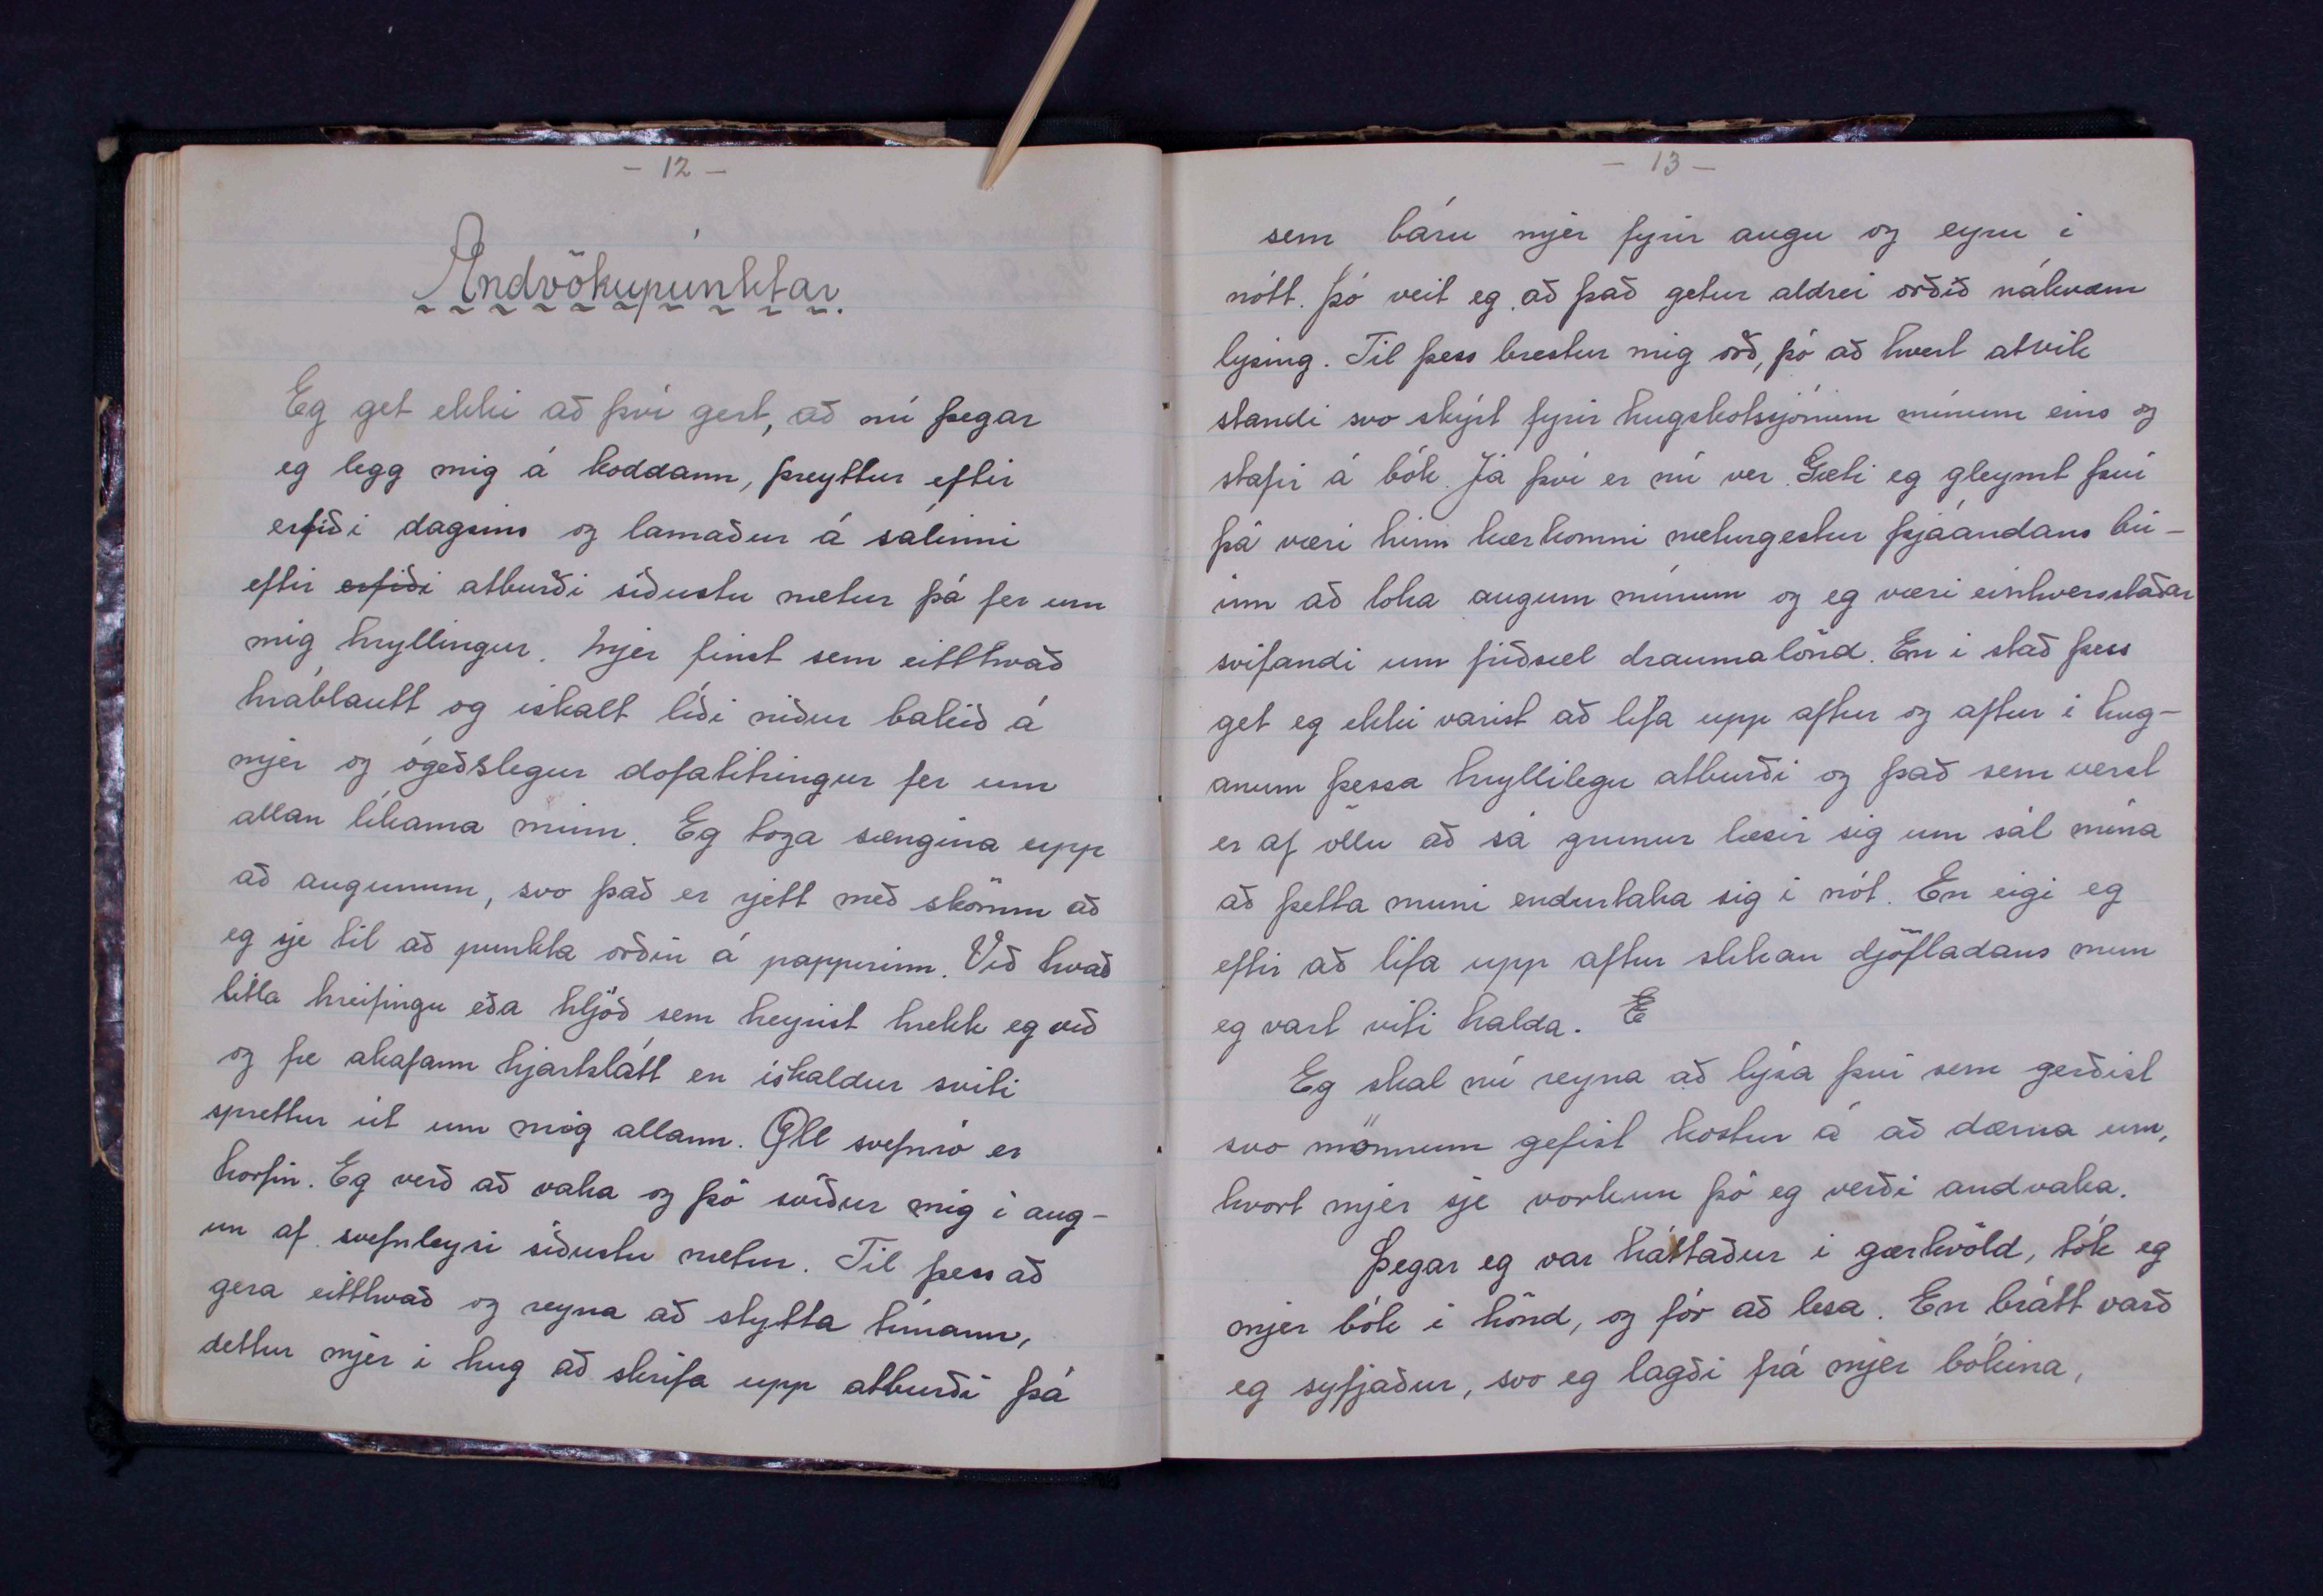 - 12 -
Andvökupúnktar.
Eg get ekki að því gert, að nú þegar
eg legg mig á koddann, þreyttur eftir
erfiði dagsins og lamaður á sálinni
eftir erfiði atburði síðustu nætur þá fer um
mig hryllingur. Mjer finst sem eitthvað
hráblautt og ískalt líði niður bakið á
mjer og ógeðslegur dofatitringur fer um
allan líkama minn. Eg toga sængina upp
að augunum, svo það er rjett með skömm að
eg sje til að punkta orðin á pappirinn. Við hvað
litla hreifingu eða hljóð sem heyrist hrekk eg við
og fæ akafann hjartslátt en ískaldur sviti
sprettur út um mig allann. Öll svefnró er
horfin. Eg verð að vaka og þó svíður mig í aug-
un af svefnleysi síðustu nætur. Til þess að
gera eitthvað og reyna að stytta tímann,
dettur mjer í hug að skrifa upp atburði þá
- 13 -
sem báru mjer fyrir augu og eyru i
nótt. Þó veit eg að það getur aldrei orðið nákvæm
lýsing. Til þess brestur mig orð, þó að hvert atvik
standi svo skýrt fyrir hugskotssjónum mínum eins og
stafir á bók. Já því er nú ver. Gæti eg gleymt því
þá væri hinn kærkomni næturgestur þjáandans bú-
inn að loka augum mínum og eg væri einhversstaðar
svifandi um friðsæl draumalönd. En í stað þess
get eg ekki varist að lifa upp aftur og aftur í hug-
anum þessa hryllilegu atburði og það sem verst
er af öllu að sá grunur læsir sig um sál mína
að þetta muni endurtaka sig í nót. En eigi eg
eftir að lifa upp aftur slíkan djöfladans mun
eg vart viti halda. E
Eg skal nú reyna að lýsa því sem gerðist
svo mönnum gefist kostur á að dæma um,
hvort mjer sje vorkun þó eg verði andvaka.
Þegar eg var háttaður í gærkvöld, tók eg
mjer bók í hönd, og fór að lesa. En brátt varð
eg syfjaður, svo eg lagði frá mjer bókina,